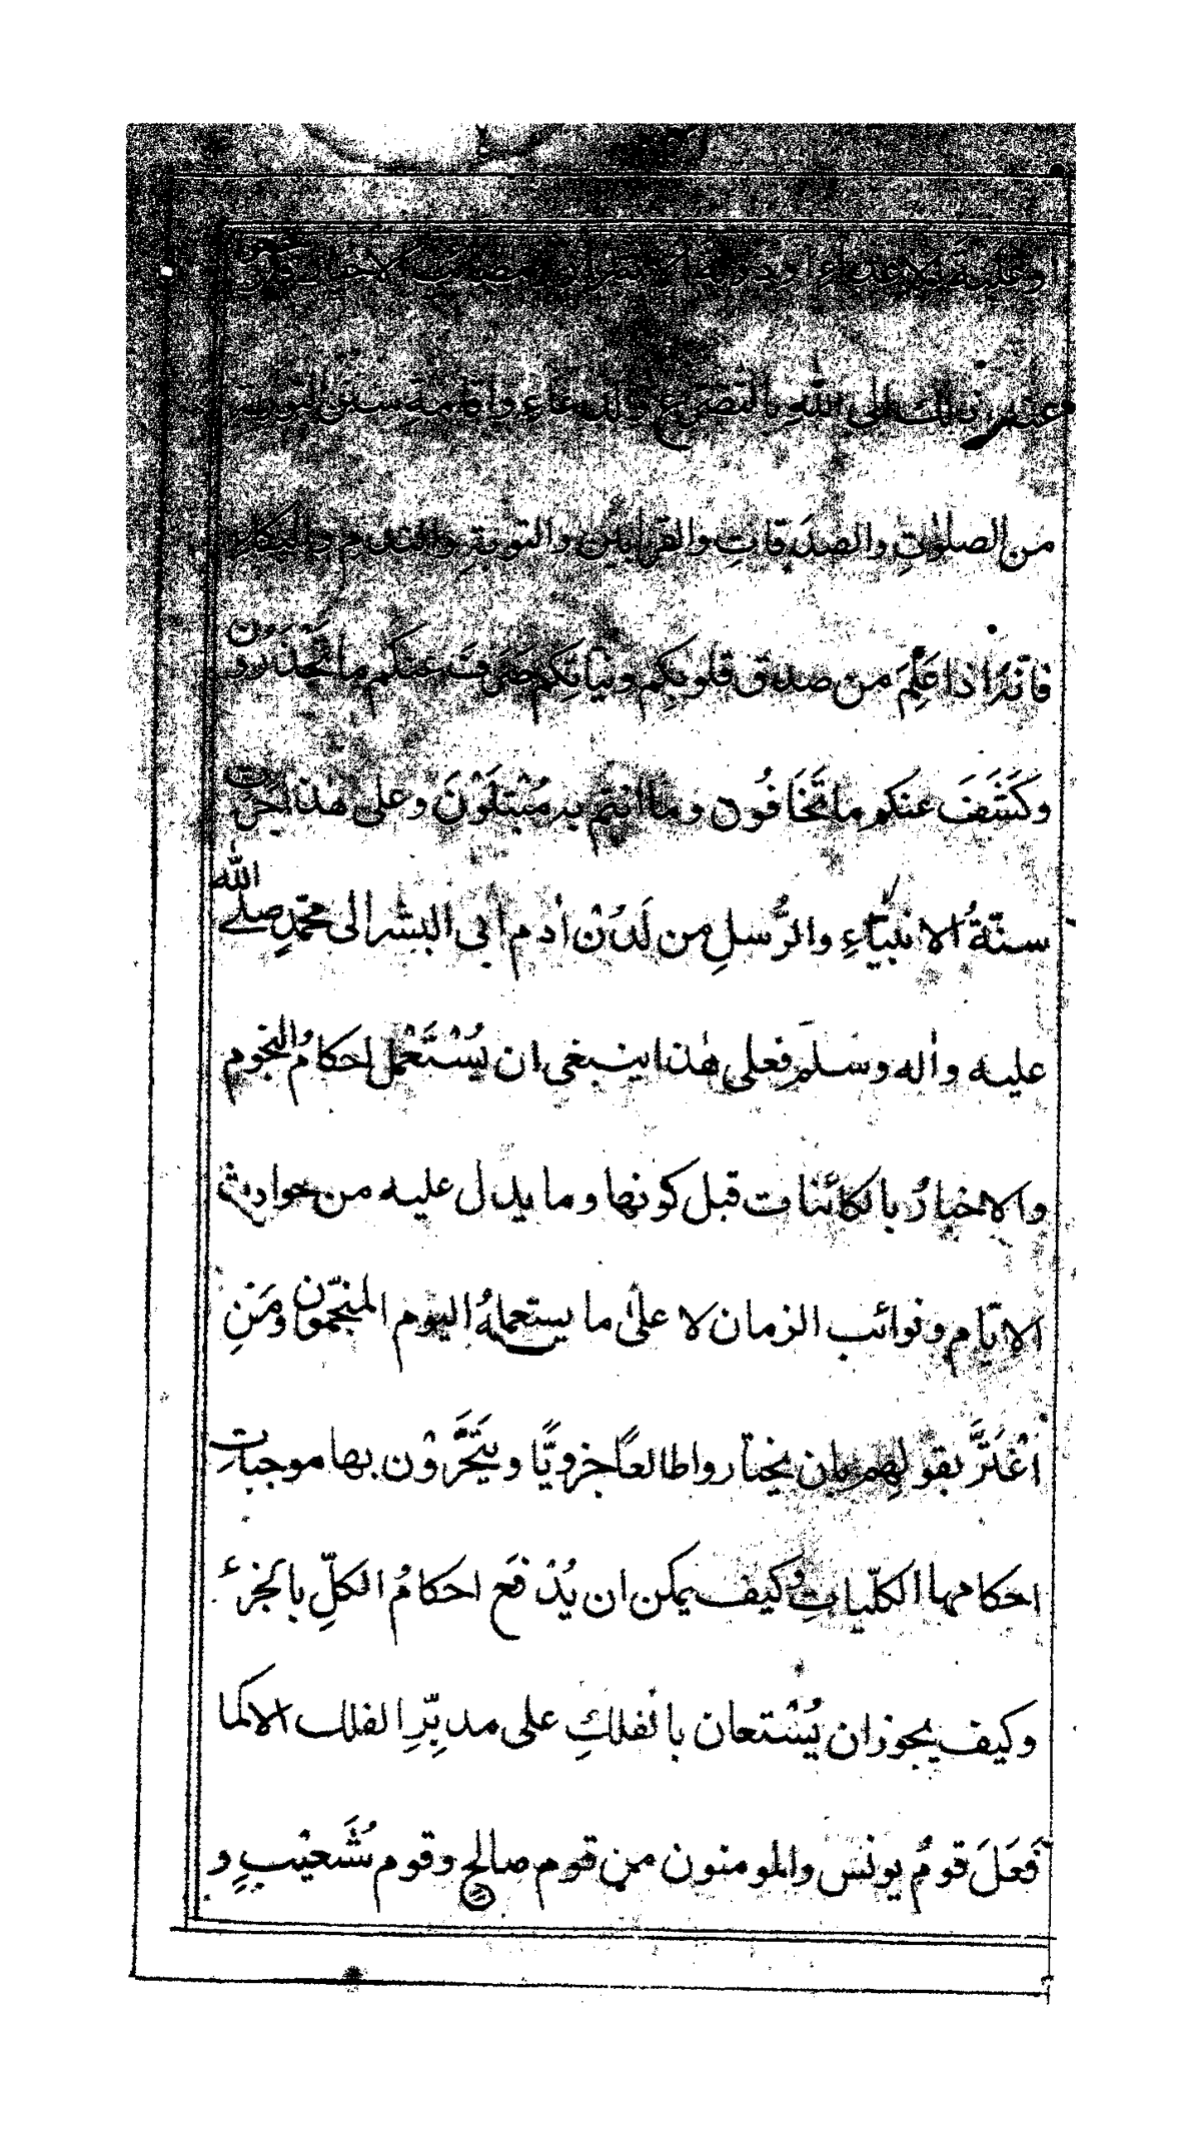 او غلبة الاعداء او دولة الاشرار او مصائب الاخيار
عند ذلك الى الله بالتضرع والدعاء واقامة سنن التورية
من الصلوٰتِ والصدَقاتِ والقرابين والتوبةِ والندم والبكاء
فانّهُ اذا عَلِمَ من صدق قلوبِكم ونيّاتِكم صَرَفَه عنكم ما تَحذَرون
وكَشَفَ عنكم ما تَخَافُون وما انتم به مُبْتَلَوْنَ وعلى هذا جَرَت
سنّةُ الانبيَآءِ والرُّسلِ من لَدُنْ اٰدم ابى البشر الى محمّدٍ صلى الله
عليه واٰله وسَلم فعلى هٰذا ينبغى ان يُسْتَعْمل احكامُ النجوم
والاخبارُ بالكائنات قبل كونها وما يدل عليه من حوادث
الايّام ونوائب الزمان لا على ما يستعملهُ اليوم المنجّمون ومَنِ
اغْتَرَّ بقولِهم بان يختاروا طالعاً جزويًّا ويتَحَّرزون بها موجباتِ
احكامها الكلّياتِ وكيف يمكن ان يُدْفَع احكامُ الكلِّ بالجزء
وكيف يجوز ان يُسْتعان بالفلكِ على مدبِّرِ الفلك الا كما
فَعَلَ قومُ يونس والمومنون من قوم صالح وقوم شُعَيْبٍ و